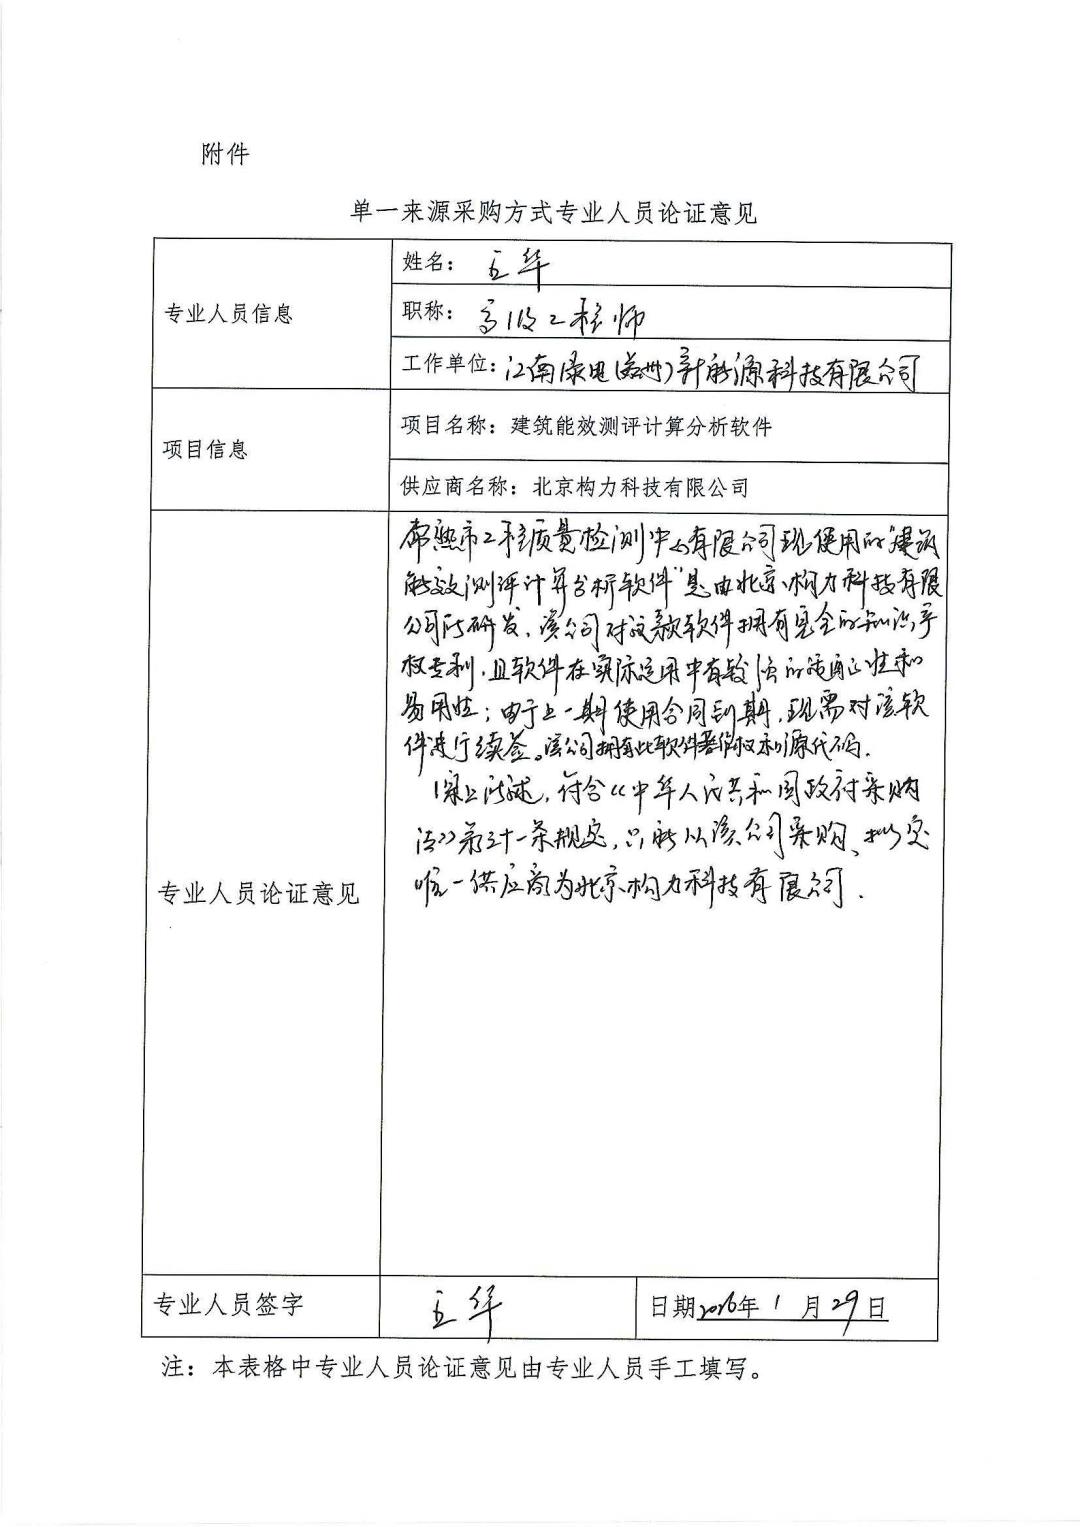 附件
单一来源采购方式专业人员论证意见
专业人员信息
姓名：王华
职称：高级工程师
工作单位：江南绿电(苏州)新能源科技有限公司
项目信息
项目名称：建筑能效测评计算分析软件
供应商名称：北京构力科技有限公司
专业人员论证意见
常熟市工程质量检测中心有限公司现使用的“建筑
能效测评计算分析软件”是由北京构力科技有限
公司所研发，该公司对这款软件拥有完全的知识产
权专利，且软件在实际运用中有较强的适配性和
易用性；由于上一期使用合同到期，现需对该软
件进行续签。该公司拥有此软件著作权和源代码.
综上所述，符合《中华人民共和国政府采购
法》第三十一条规定，只能从该公司采购，拟定
唯一供应商为北京构力科技有限公司.
专业人员签字
王华
日期2026年1月29日
注：本表格中专业人员论证意见由专业人员手工填写。